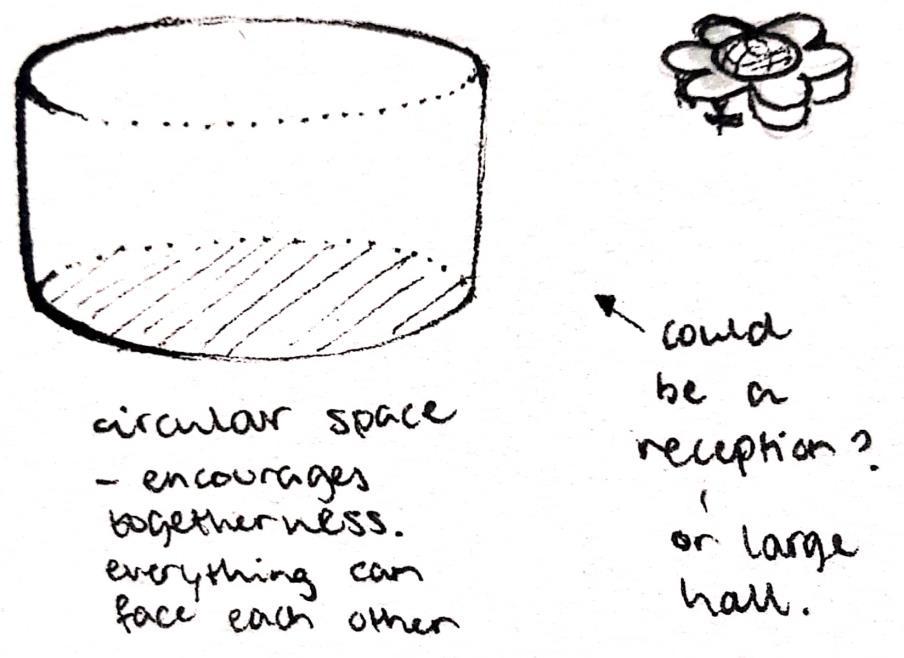 circular space
- encourages
togetherness.
everything can
face each other
could
be a
reception?
or large
hall.